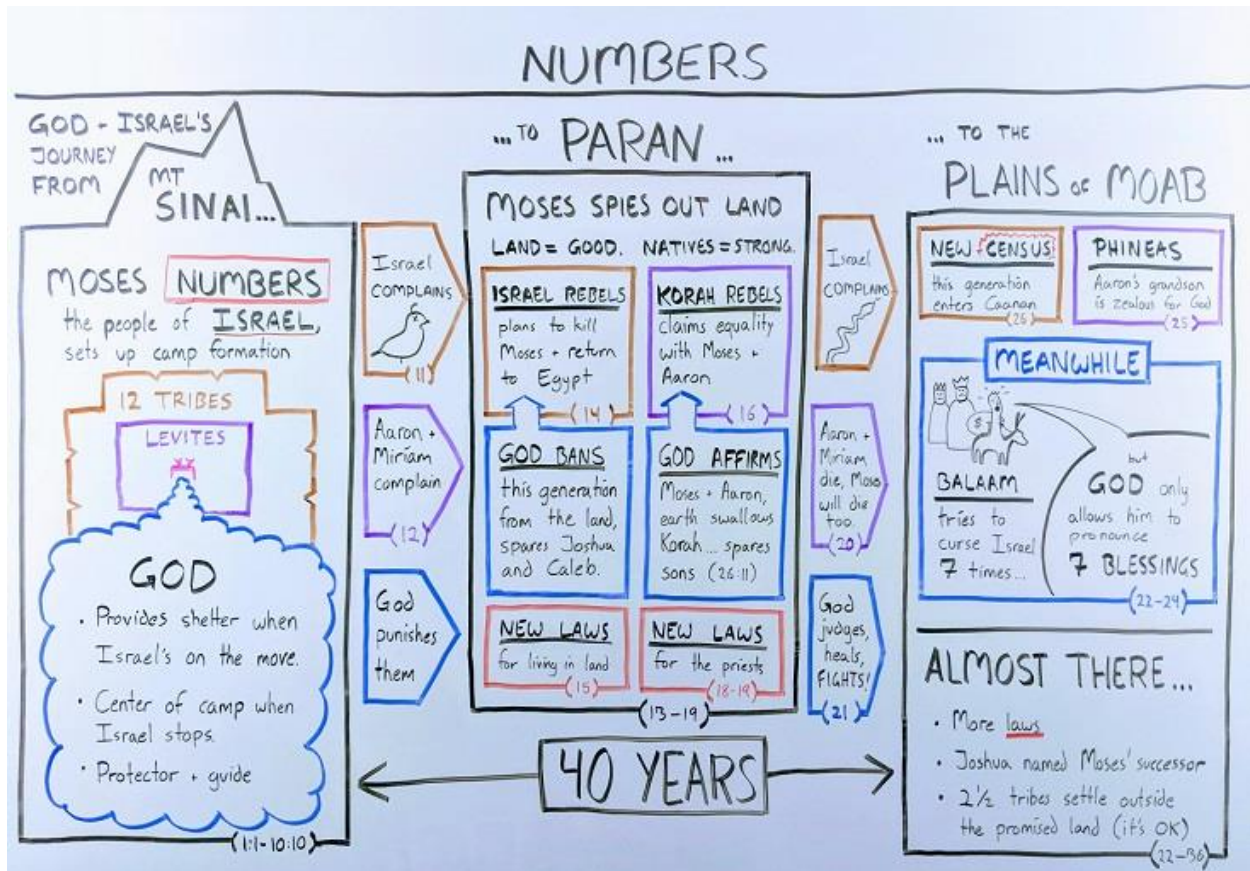 NUMBERS
GOD + ISRAEL'S
JOURNEY
FROM
MT
SINAI...
MOSES NUMBERS
the people of ISRAEL,
sets up camp formation
12 TRIBES
LEVITES
GOD
• Provides shelter when
Israel's on the move.
• Center of camp when
Israel stops.
• Protector + guide
(1:1-10:10)
Israel
COMPLAINS
(11)
Aaron +
Miriam
complain
(12)
God
punishes
them
...TO PARAN...
MOSES SPIES OUT LAND
LAND = GOOD. NATIVES = STRONG.
ISRAEL REBELS
plans to kill
Moses + return
to Egypt
(14)
GOD BANS
this generation
from the land,
spares Joshua
and Caleb.
NEW LAWS
for living in land
(15)
KORAH REBELS
claims equality
with Moses +
Aaron
(16)
GOD AFFIRMS
Moses + Aaron,
earth swallows
Korah... spares
sons (26:11)
NEW LAWS
for the priests
(18-19)
(13-19)
40 YEARS
Israel
COMPLAINS
Aaron +
Miriam
die, Moses
will die
too.
(20)
God
judges,
heals,
FIGHTS!
(21)
... TO THE
PLAINS OF MOAB
NEW CENSUS
this generation
enters Caanan
(26)
PHINEAS
Aaron's grandson
is zealous for God
(25)
MEANWHILE
$
BALAAM
tries to
curse Israel
7 times...
but
GOD only
allows him to
pronounce
7 BLESSINGS
(22-24)
ALMOST THERE...
• More laws
• Joshua named Moses' successor
• 2½ tribes settle outside
the promised land (it's OK)
(22-36)